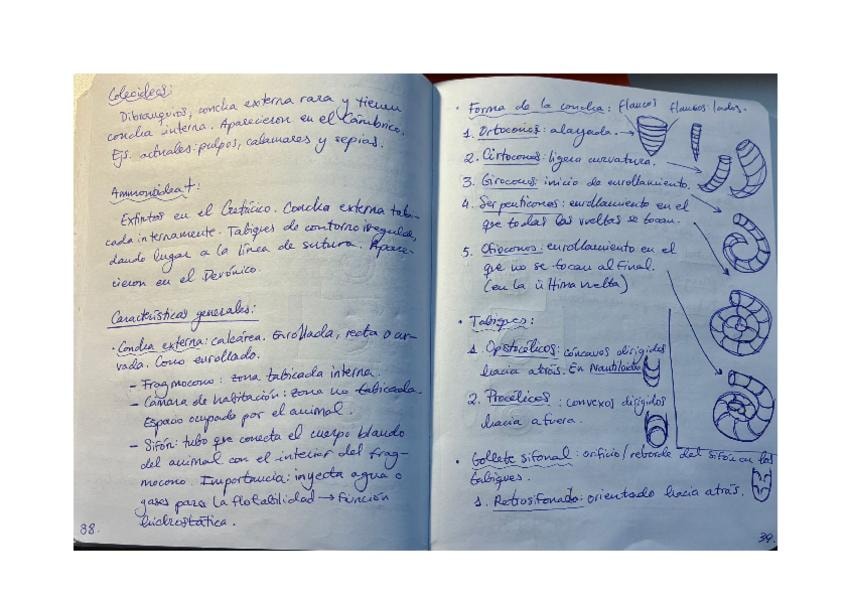 Coleoideas:
Dibranquios, concha externa rara y tienen
concha interna. Aparecieron en el Cámbrico.
Ejs. actuales: pulpos, calamares y sepias.
Ammonoidea†:
Extintos en el Cretácico. Concha externa tabi-
cada internamente. Tabiques de contorno irregular,
dando lugar a la línea de sutura. Apare-
cieron en el Devónico.
Características generales:
· Concha externa: calcárea. Enrollada, recta o cur-
vada. Cono enrollado.
- Fragmocono: zona tabicada interna.
- Cámara de habitación: zona no tabicada.
Espacio ocupado por el animal.
- Sifón: tubo que conecta el cuerpo blando
del animal con el interior del frag-
mocono. Importancia: inyecta agua o
gases para la flotabilidad → Función
hidrostática.
38.
· Forma de la concha: flancos flancos: lados.
1. Ortoconos: alargada. →
2. Cirtoconos: ligera curvatura.
3. Giroconos: inicio de enrollamiento.
4. Serpenticonos: enrollamiento en el
que todas las vueltas se tocan.
5. Ofioconos: enrollamiento en el
que no se tocan al final.
(en la última vuelta)
· Tabiques:
1. Opistocélicos: cóncavos dirigidos
hacia atrás. En Nautiloidea
2. Procélicos: convexos dirigidos
hacia afuera.
· Gollete sifonal: orificio/reborde del sifón en los
tabiques.
1. Retrosifonado: orientado hacia atrás.
39.